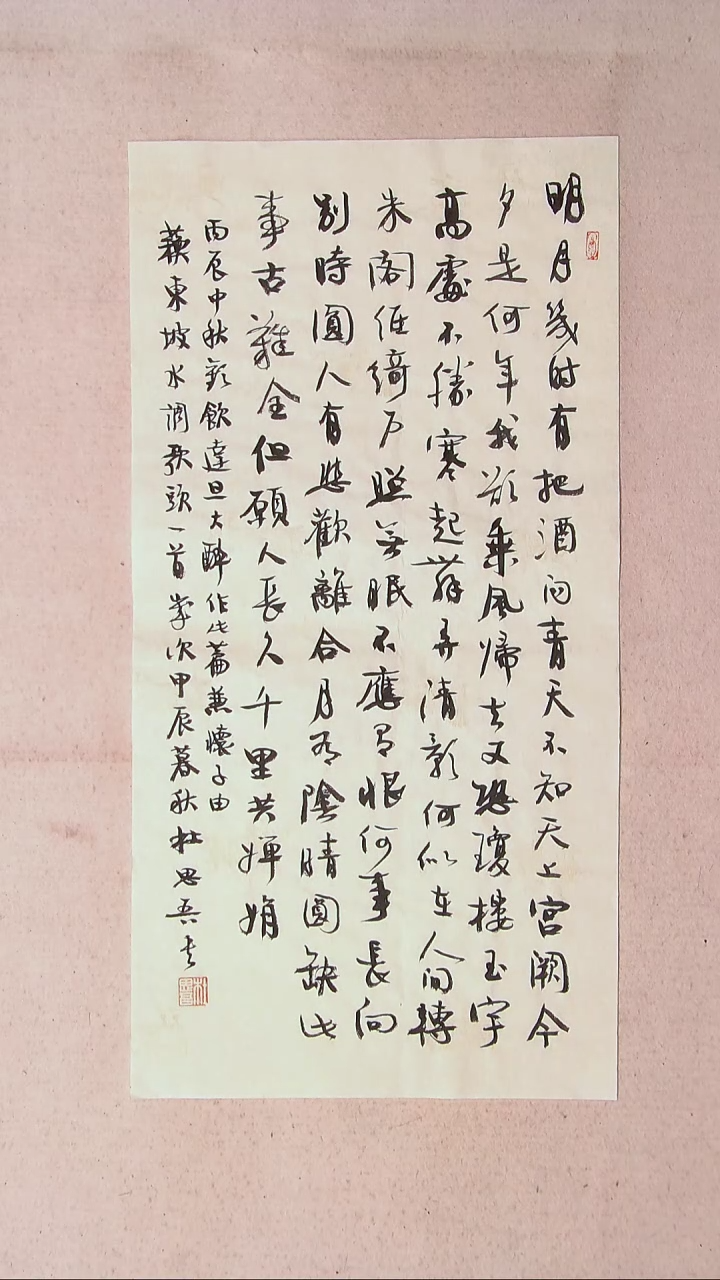 明月幾时有把酒问青天不知天上宫阙今
夕是何年我欲乘风歸去又恐瓊楼玉宇
高處不勝寒起舞弄清影何似在人间轉
朱阁低绮户照無眠不應有恨何事長向
别時圓人有悲歡離合月有陰晴圆缺此
事古難全但願人長久千里共婵娟
丙辰中秋歡飲達旦大醉作此篇兼懷子由
蘇東坡水调歌頭一首岁次甲辰暮秋杜思吾书